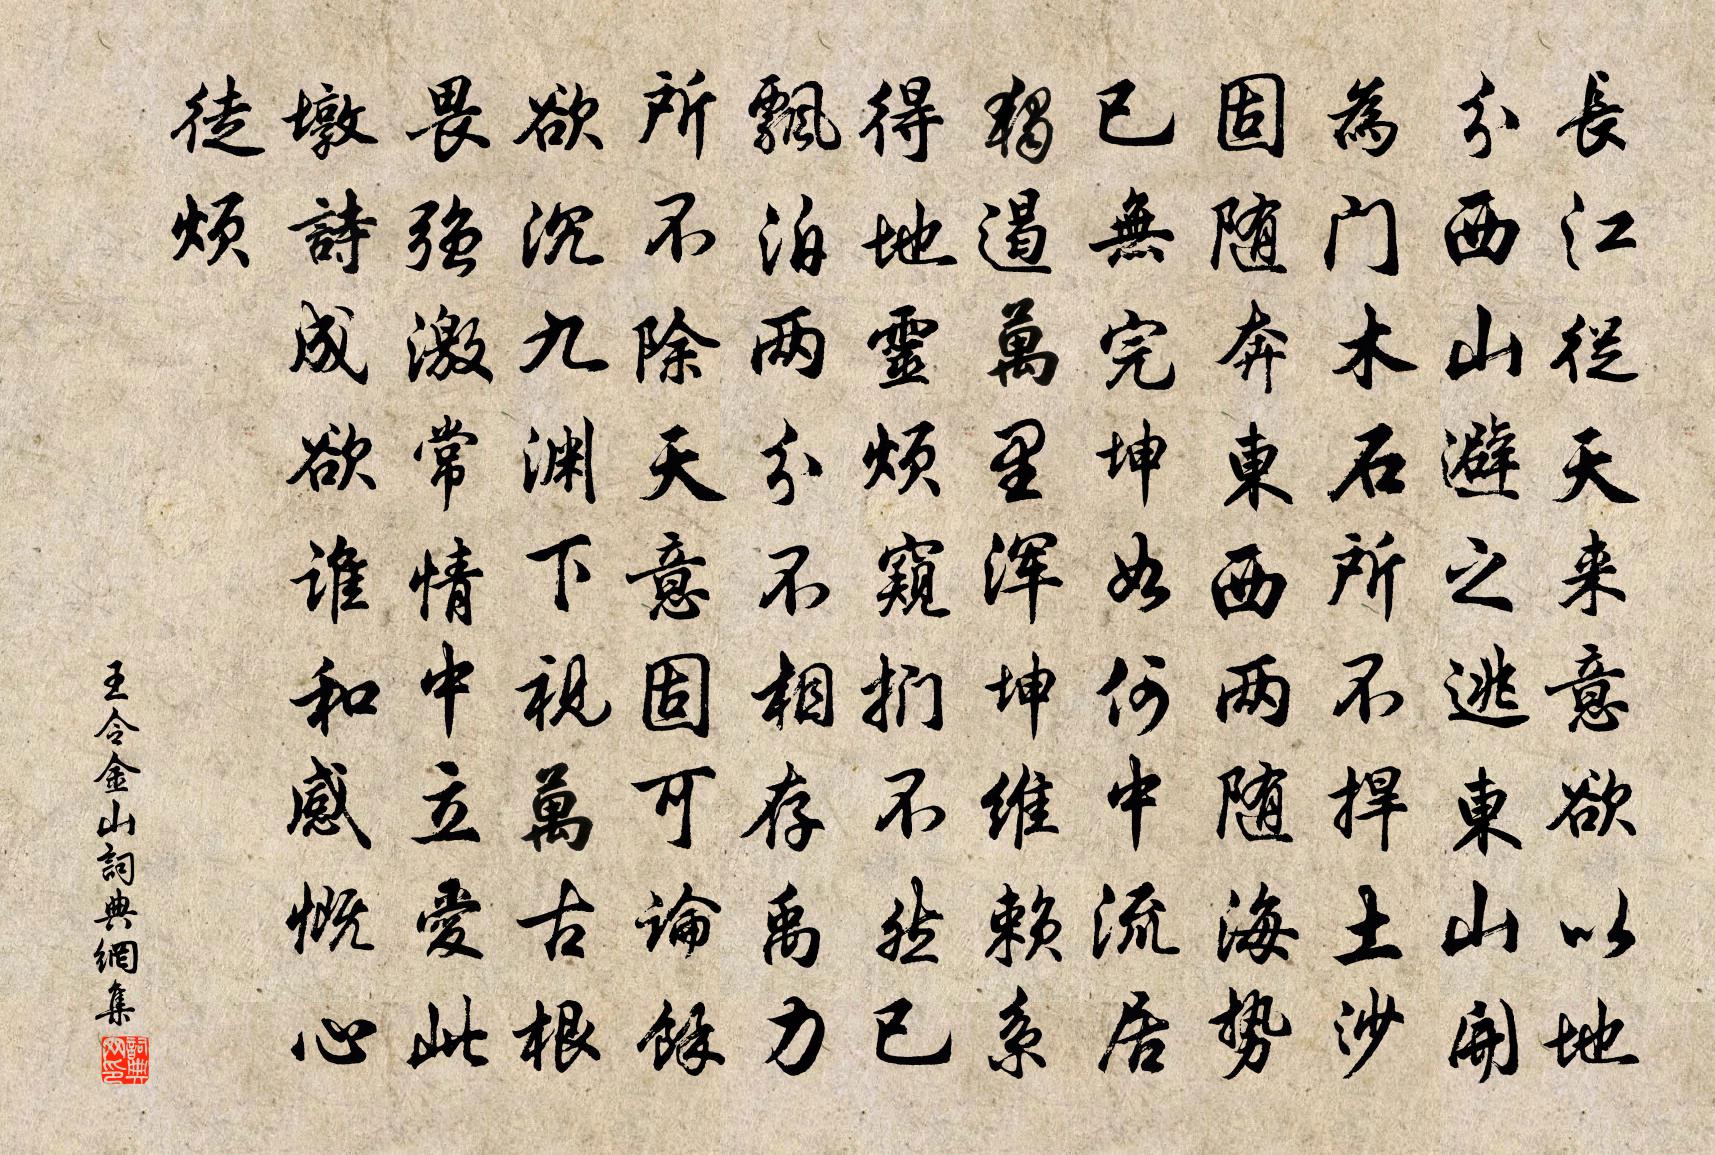 長江從天来意欲以地
分西山避之逃東山開
為門木石所不捍土沙
固随奔東西兩随海勢
已無完坤如何中流居
獨遏萬里渾坤維賴系
得地靈煩窺捫不然已
飄泊兩分不相存禹力
所不除天意固可論餘
欲沉九渊下視萬古根
畏強激常情中立愛此
墩詩成欲谁和感慨心
徒煩
王令金山詞典網集
詞典网印